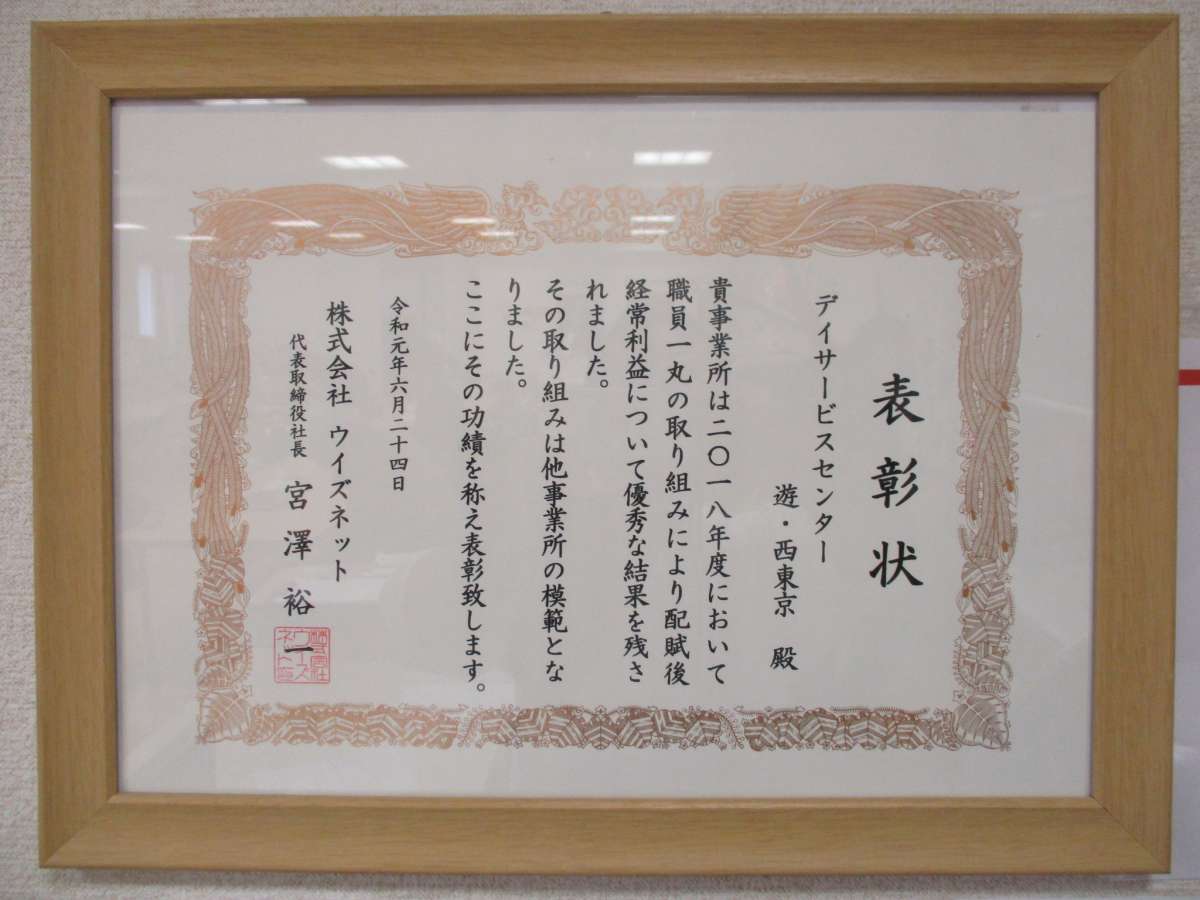 表彰状
デイサービスセンター
遊・西東京 殿
貴事業所は二〇一八年度において
職員一丸の取り組みにより配賦後
経常利益について優秀な結果を残さ
れました。
その取り組みは他事業所の模範とな
りました。
ここにその功績を称え表彰致します。
令和元年六月二十四日
株式会社 ウイズネット
代表取締役社長 宮澤裕一